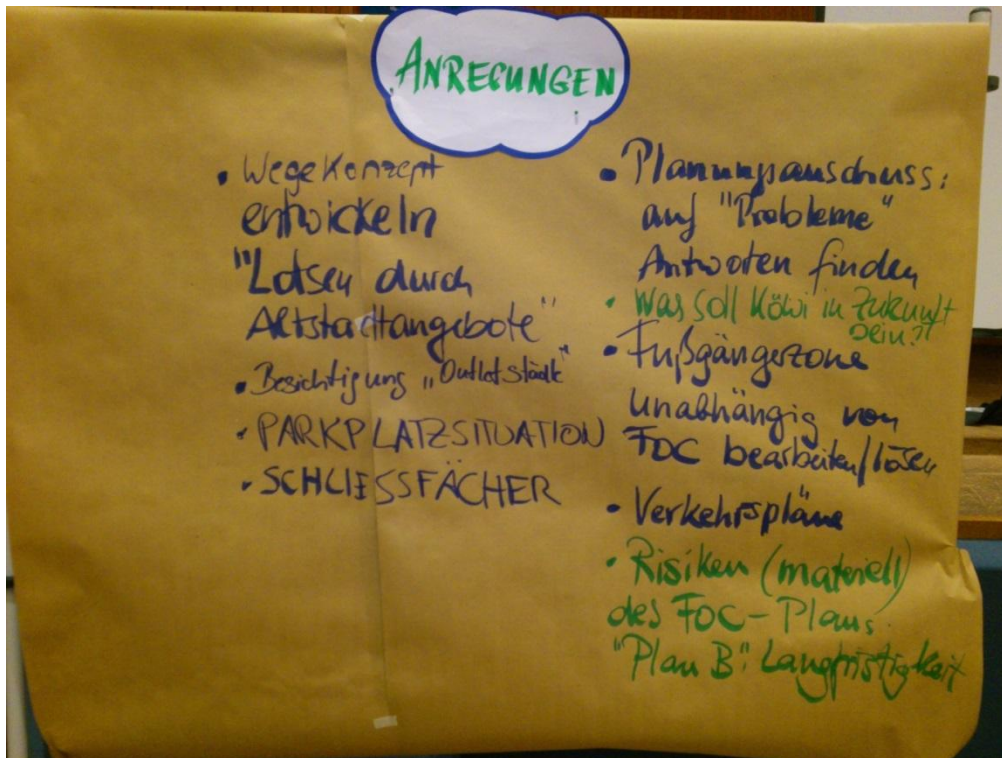 ANREGUNGEN
• Wegekonzept
entwickeln
"Lotsen durch
Altstadtangebote"
• Besichtigung „Outletstädte"
• PARKPLATZSITUATION
• SCHLIESSFÄCHER
• Planungsausschuss:
auf "Probleme"
Antworten finden
• Was soll Köwi in Zukunft
sein?!
• Fußgängerzone
unabhängig von
FOC bearbeiten/lösen
• Verkehrspläne
• Risiken (materiell)
des FOC-Plans.
"Plan B": Langfristigkeit